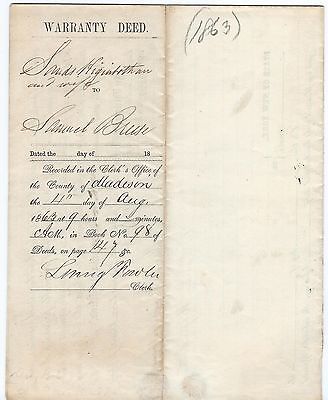 WARRANTY DEED.
(1863)
Sands Higinbotham
and wife
TO
Samuel Breese
Dated the day of 18
Recorded in the Clerk's Office of
the County of Madison
the 4th day of Aug.
1863 at 9 hours and minutes,
A.M., in Book No. 98 of
Deeds, on page 247 &c.
Loring Fowler
Clerk.